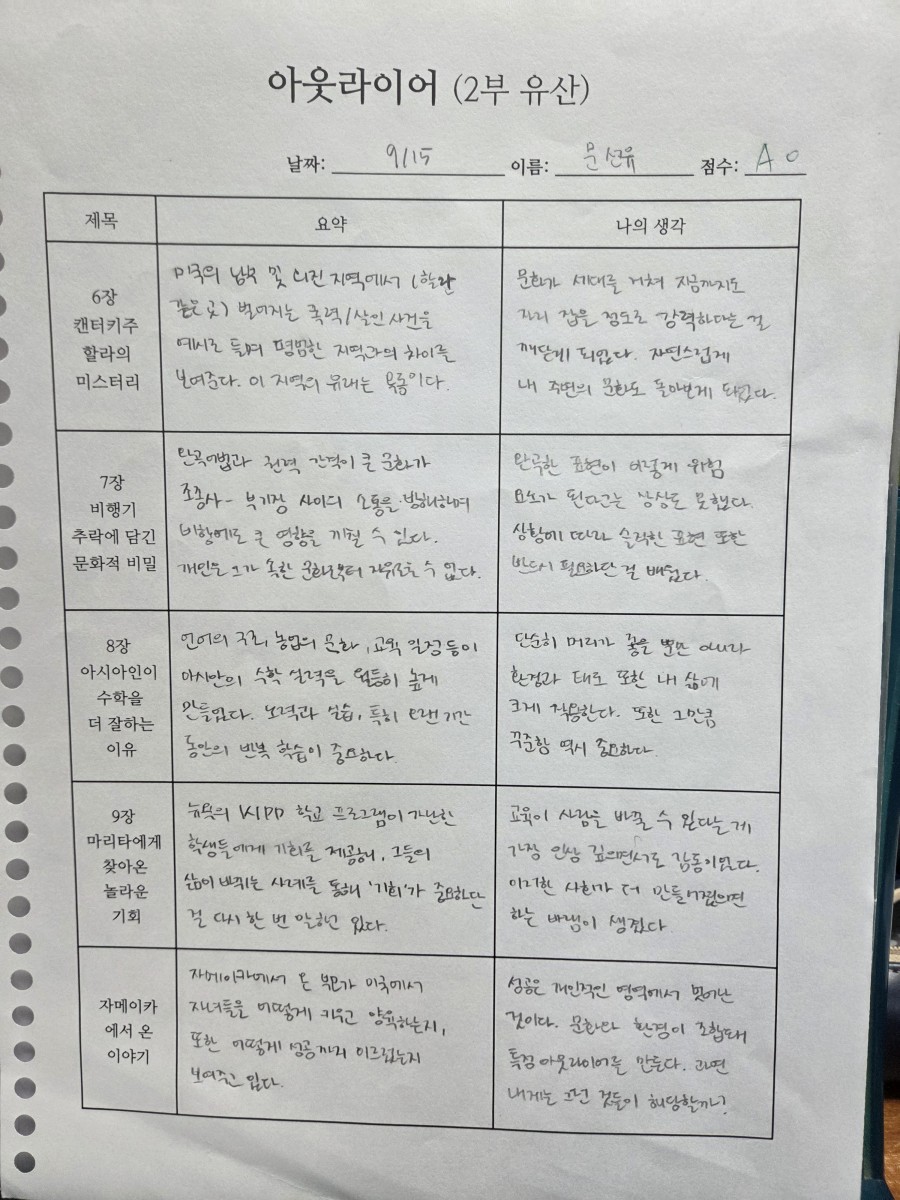 아웃라이어 (2부 유산)
날짜: 9/15 이름: 문선유 점수: A0
제목 요약 나의 생각
6장
캔터키주
할라의
미스터리
미국의 남주 및 외진 지역에서 (할란
같은 곳) 벌어지는 폭력/살인 사건을
예시로 들며 평범한 지역과의 차이를
보여준다. 이 지역의 유래는 목동이다.
문화가 세대를 거쳐 지금까지도
자리 잡을 정도로 강력하다는 걸
깨닫게 되었다. 자연스럽게
내 주변의 문화도 돌아보게 되었다.
7장
비행기
추락에 담긴
문화적 비밀
완곡어법과 권력 간격이 큰 문화가
조종사- 부기장 사이의 소통을 방해하며
비행에도 큰 영향을 끼칠 수 있다.
개인은 그가 속한 문화로부터 자유로울 수 없다.
완곡한 표현이 이렇게 위험
요소가 된다고는 상상도 못했다.
상황에 따라 솔직한 표현 또한
반드시 필요하단 걸 배웠다.
8장
아시아인이
수학을
더 잘하는
이유
언어의 구조, 농업의 문화, 교육 일정 등이
아시안의 수학 실력을 월등히 높게
만들었다. 노력과 실습, 특히 오랜 기간
동안의 반복 학습이 중요하다.
단순히 머리가 좋을 뿐만 아니라
환경과 태도 또한 내 삶에
크게 작용한다. 또한 그만큼
꾸준함 역시 중요하다.
9장
마리타에게
찾아온
놀라운
기회
뉴욕의 KIPP 학교 프로그램이 가난한
학생들에게 기회를 제공해, 그들의
삶이 바뀌는 사례를 통해 '기회'가 중요하단
걸 다시 한 번 말하고 있다.
교육이 사람을 바꿀 수 있다는 게
가장 인상 깊으면서도 감동이었다.
이러한 사회가 더 만들어졌으면
하는 바램이 생겼다
자메이카
에서 온
이야기
자메이카에서 온 부모가 미국에서
자녀들을 어떻게 키우고 양육하는지,
또한 어떻게 성공까지 이르렀는지
보여주고 있다.
성공은 개인적인 영역에서 벗어난
것이다. 문화와 환경이 조합돼
특정 아웃라이어를 만든다. 과연
내게는 그런 것들이 해당할까?